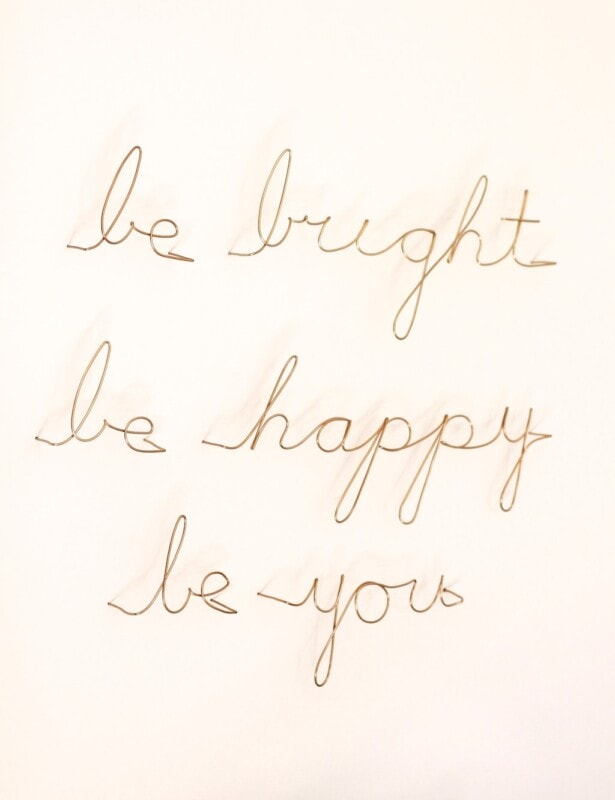 be bright
be happy
be you